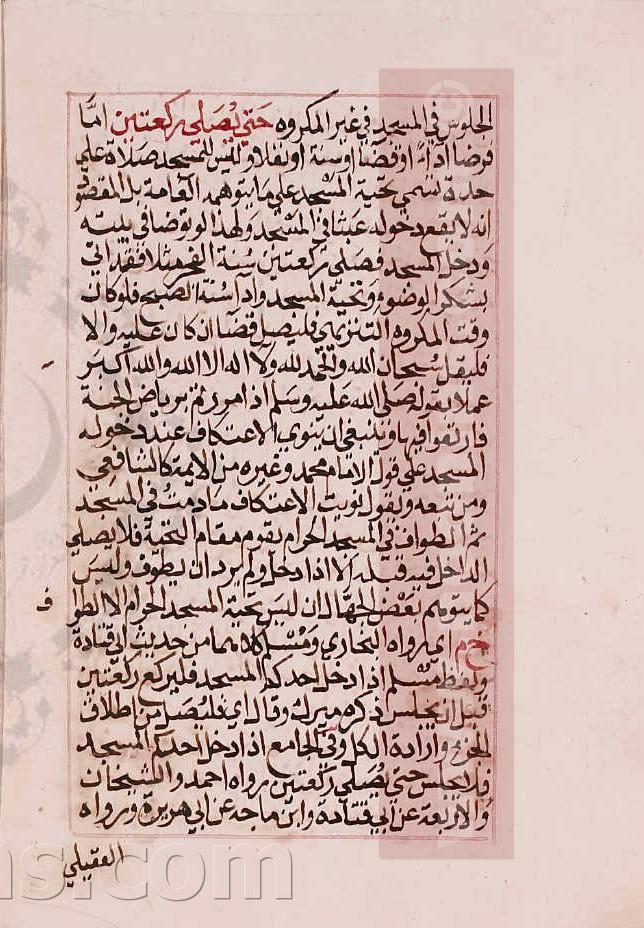 الجلوس في المسجد في غير المكروه حتى يُصلي ركعتين امَّا
فرضا اداءً او قضاً او سنة او نفلا وليس للمسجد صلاة علي
حدة تسمي تحية المسجد علي ما يتوهمه العامة بل المقصود
انه لا يقع دخوله عبثا في المسجد ولهذا لو توضا في بيته
ودخل المسجد فصلى ركعتين سنة الفجر مثلا فقد اتى
بشكر الوضوء وتحية المسجد واداء سنة الصبح فلو كان
وقت المكروه التنزيهي فليصل قضا ان كان عليه والا
فليقل سُبحان الله والحمد لله ولا اله الا الله والله اكبر
عملا بقوله صلى الله عليه وسلم اذا مررتم برياض الجنة
فارتعوا فيها وينبغي ان ينوي الاعتكاف عند دخوله
المسجد علي قول الامام محمد وغيره من الايمة كالشافعي
ومن تبعه ويقول نويت الاعتكاف ما دمتُ في المسجد
ثم الطواف في المسجد الحرام يقوم مقام التحية فلا يصلي
الداخل فيه قبله الا اذا دخل ولم يرد ان يطوف وليس
كما يتوهم بعض الجهال ان ليس تحية المسجد الحرام الا الطوا
ف
خ م اي رواه البخاري ومسلم كلاهما من حديث ابي قتادة
ولفظ مسلم اذا دخل احدكم المسجد فليركع ركعتين
قبل ان يجلس ذكره ميرك وقال اي فليصل من اطلاق
الجزء وارادة الكل وفي الجامع اذا دخل احدكم المسجد
فلا يجلس حتى يُصلي ركعتين رواه احمد والشيخان
والاربعة عن ابي قتادة وابن ماجه عن ابي هريرة ورواه
العقيلي
ns.com